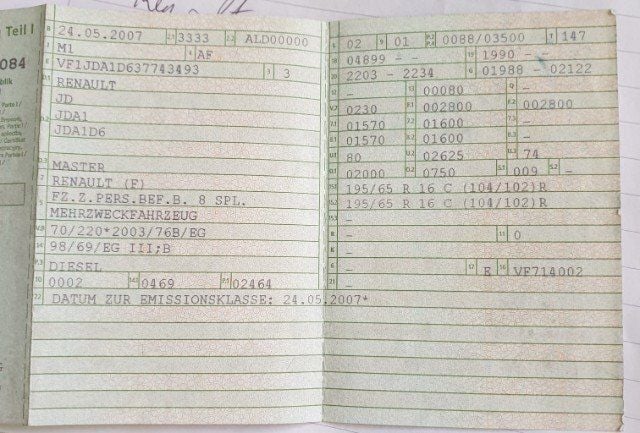 Teil I
084
B 24.05.2007 2.1 3333 2.2 ALD00000
J M1 4 AF
E VF1JDA1D637743493 3 3
D.1 RENAULT
JD
D.2 JDA1
JDA1D6
D.3 MASTER
2 RENAULT (F)
5 FZ.Z.PERS.BEF.B. 8 SPL.
MEHRZWECKFAHRZEUG
V.9 70/220*2003/76B/EG
14 98/69/EG III;B
P.3 DIESEL
10 0002 14.1 0469 P.1 02464
22 DATUM ZUR EMISSIONSKLASSE: 24.05.2007*
L 02 9 01 P.2 P.4 0088/03500 T 147
18 04899 – – 19 1990 – –
20 2203 – 2234 G 01988 – 02122
12 – 13 00080 Q –
V.7 0230 F.1 002800 F.2 002800
7.1 01570 7.2 01600 7.3 –
8.1 01570 8.2 01600 8.3 –
U.1 80 U.2 02625 U.3 74
O.1 02000 O.2 0750 S.1 009 S.2 –
15.1 195/65 R 16 C (104/102)R
15.2 195/65 R 16 C (104/102)R
15.3 –
R – 11 0
K –
6 – 17 E 16 VF714002
21 –